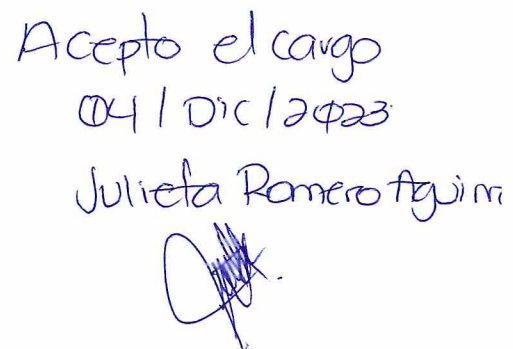 Acepto el cargo
04/Dic/2023
Julieta Romero